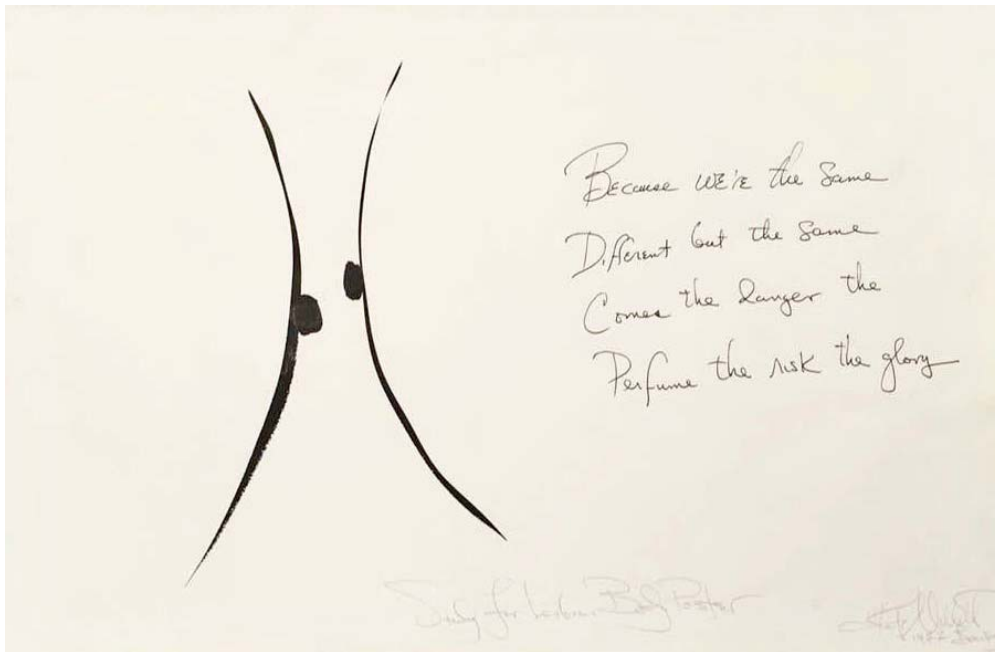 Because WE'RE the Same
Different but the Same
Comes the danger the
Perfume the risk the glory
Study for Lesbian Body Poster
Kate Millett
1977